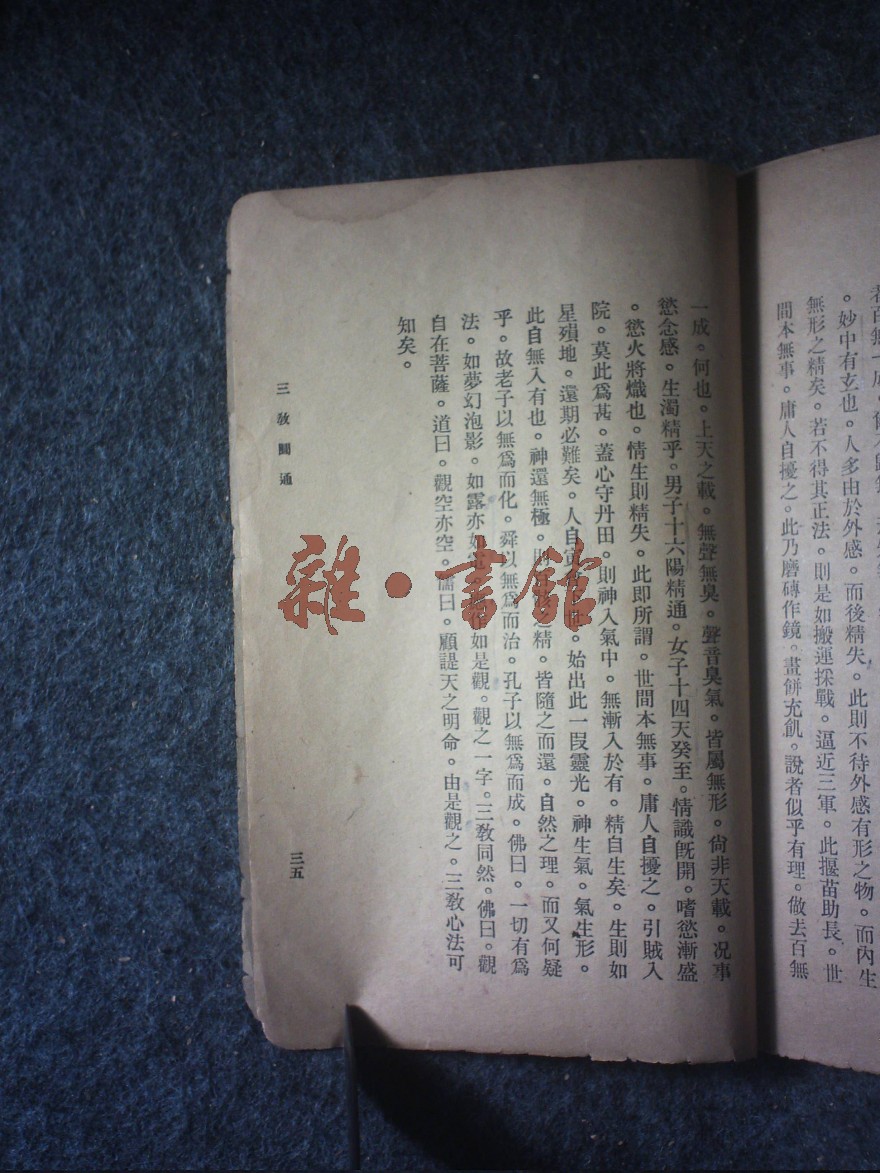 。妙中有玄也。人多由於外感。而後精失。此則不待外感有形之物。而內生
無形之精矣。若不得其正法。則是如搬運採戰。逼近三軍。此揠苗助長。世
間本無事。庸人自擾之。此乃磨磚作鏡。畫餅充飢。說者似乎有理。做去百無
一成。何也。上天之載。無聲無臭。聲音臭氣。皆屬無形。尙非天載。况事
慾念感。生濁精乎。男子十六陽精通。女子十四天癸至。情識旣開。嗜慾漸盛
。慾火將熾也。情生則精失。此即所謂。世間本無事。庸人自擾之。引賊入
院。莫此爲甚。蓋心守丹田。則神入氣中。無漸入於有。精自生矣。生則如
星殞地。還期必難矣。人自寅 始出此一叚靈光。神生氣。氣生形。
此自無入有也。神還無極。則 之精。皆隨之而還。自然之理。而又何疑
乎。故老子以無爲而化。舜以無爲而治。孔子以無爲而成。佛曰。一切有爲
法。如夢幻泡影。如露亦如 如是觀。觀之一字。三敎同然。佛曰。觀
自在菩薩。道曰。觀空亦空。儒曰。顧諟天之明命。由是觀之。三敎心法可
知矣。
三敎圓通
三五
雜·書館